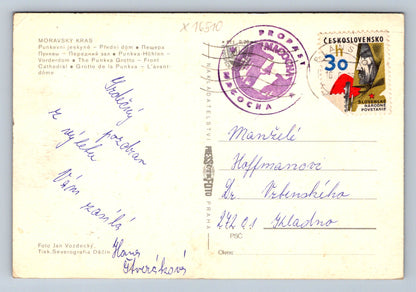 X 16510
MORAVSKÝ KRAS
Punkevní jeskyně – Přední dóm • Пещера
Пунквы – Передний зал • Punkva-Höhlen –
Vorderdom • The Punkva Grotto – Front
Cathedral • Grotte de la Punkva – L'avant-
dôme
Srdečný
pozdrav
z výletu
Vám zasílá
Hana
Foto Jan Vozdecký
Tisk Severografia Děčín
PROPAST
MACOCHA
MACOCHA
ČESKOSLOVENSKO
h
30
SLOVENSKÉ
NÁRODNÉ
POVSTANIE
NAKLADATELSTVÍ
PRESSFOTO
PRAHA
Manželé
Hoffmanovi
Dr. Vrbenského
272 01 Kladno
PSČ